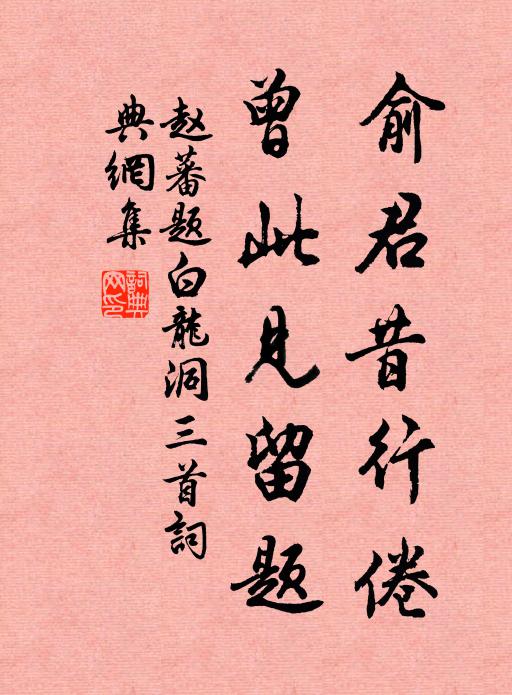 俞君昔行倦
曾此見留题
赵蕃题白龍洞三首詞
典網集
詞典
网印